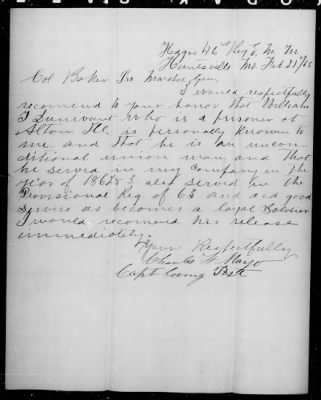 Hdqrs 46" Reg E. M. M.
Huntsville Mo Feb 21/65
Col Baker Pro Marshal Gen
I would respectfully
recomend to your honor that William
J Dunevant who is a prisoner at
Alton Ill. is personally known to
me and that he is an uncon-
ditional union man and that
he served in my Company in the
year of 1862 & also served in the
Provisional Reg of 63 and did good
service as becomes a loyal Soldier
I would recomend his release
immediately.
Yours Respectfully
Charles F. Mayo
Capt Comg Post